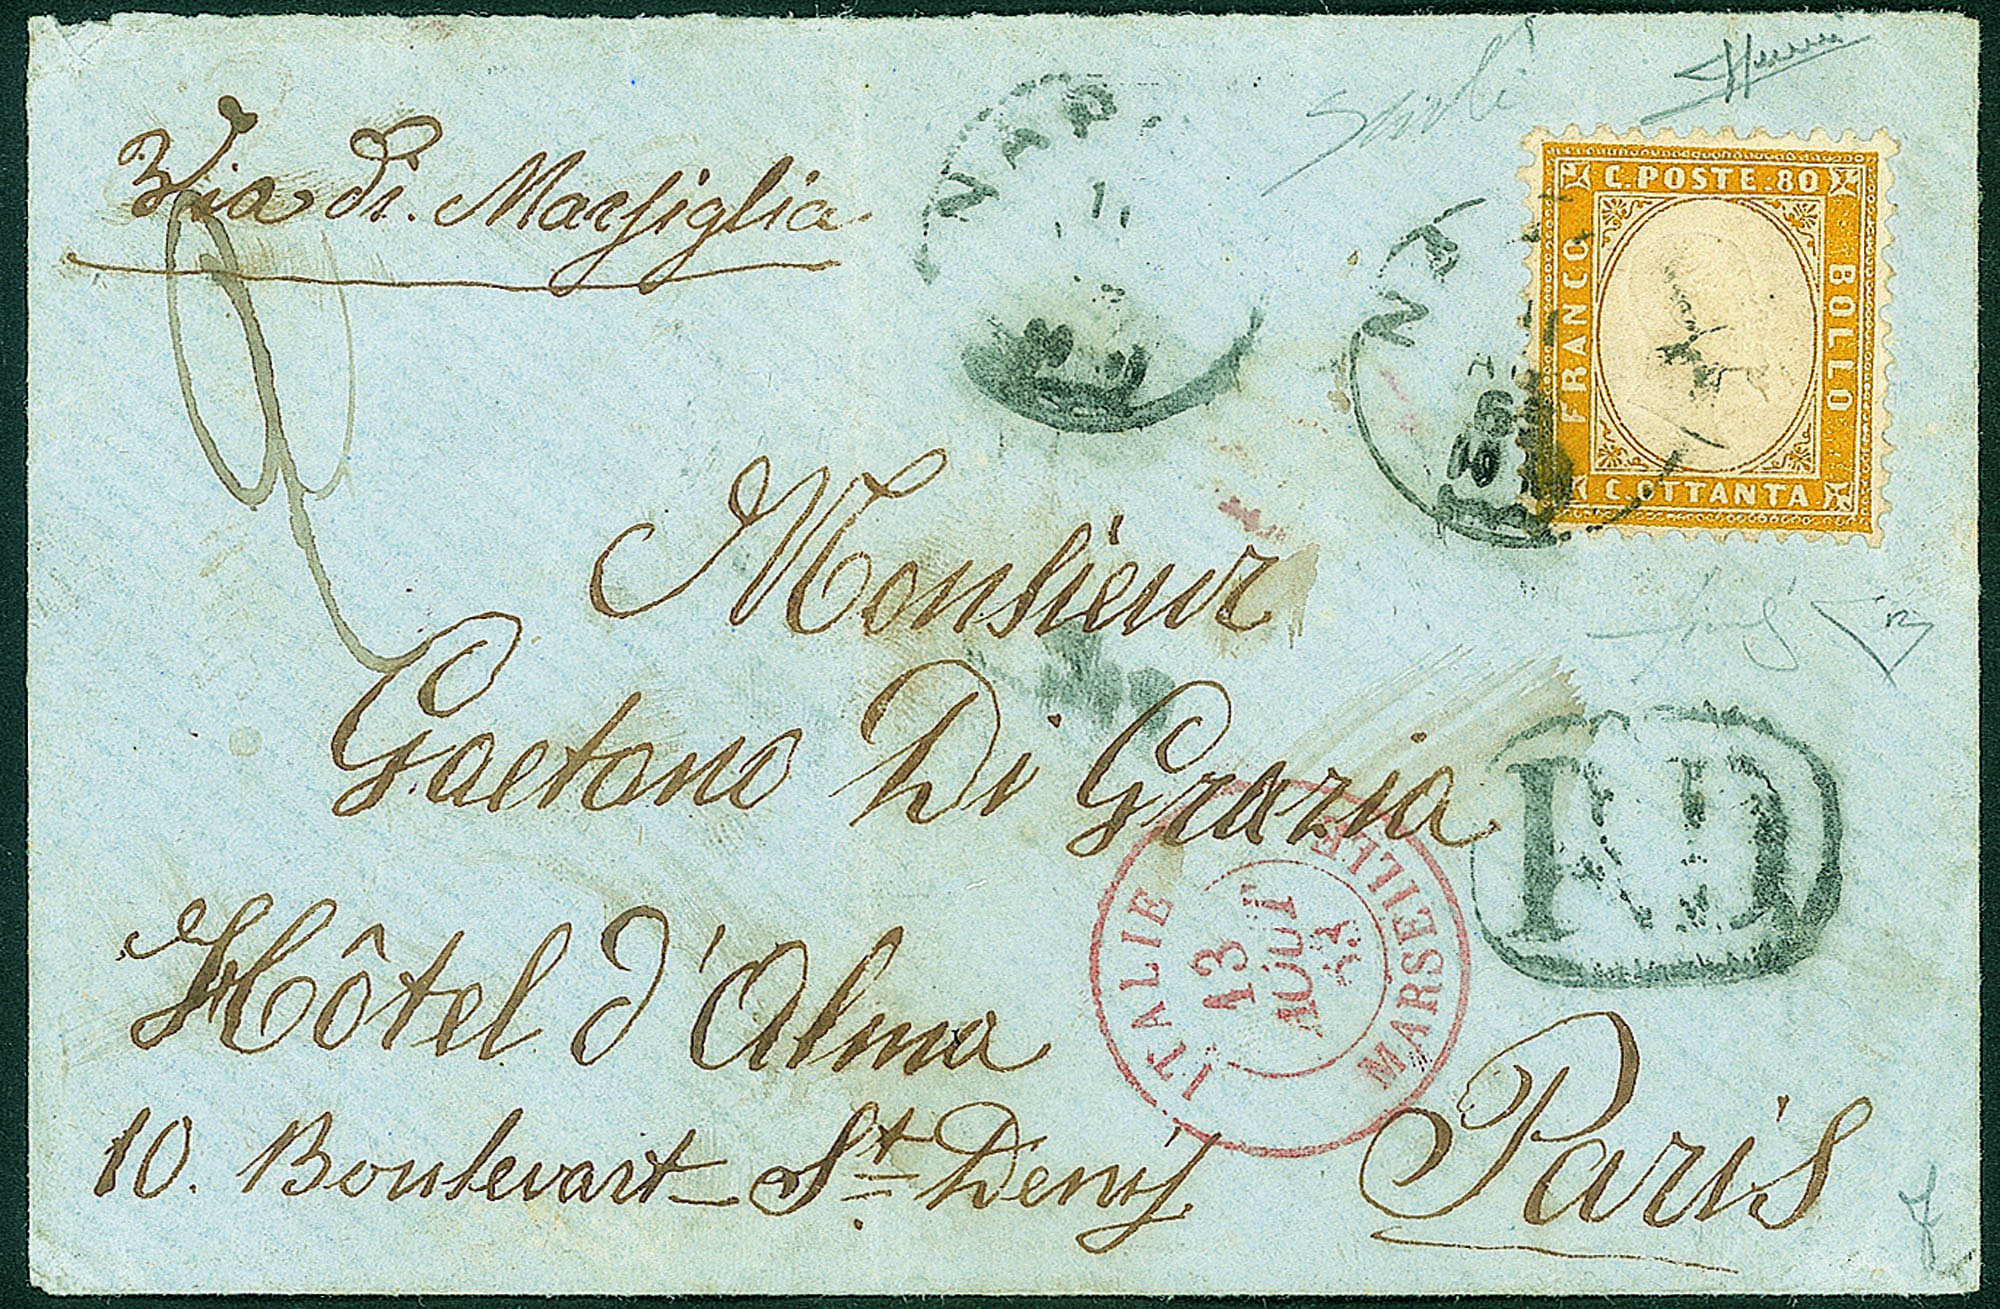 Via di Marsiglia
C. POSTE. 80
FRANCO
BOLLO
C. OTTANTA
Monsieur
Gaetano Di Grazia
ITALIE
13
AOUT
MARSEILLE
Hôtel d'Alma
10. Boulevart St Denis
Paris